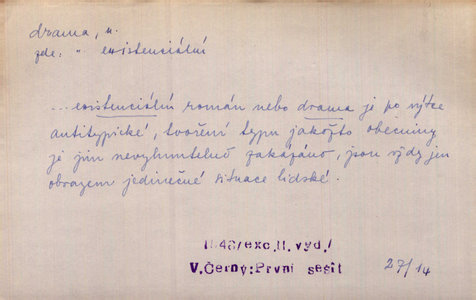 drama, n.
zde: " existenciální
... existenciální román nebo drama je po výtce
antitypické, tvoření typu jakožto obecniny
je jim nevyhnutelně zakázáno, jsou vždy jen
obrazem jedinečné situace lidské.
1948/exc.II.vyd./
V.Černý:První sešit
27/14